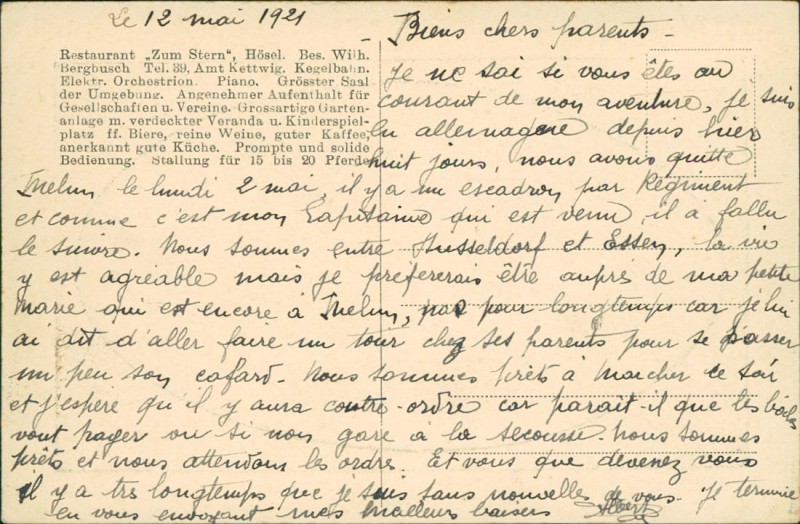 Le 12 mai 1921
Biens chers parents -
Restaurant „Zum Stern“, Hösel. Bes. Wilh.
Bergbusch Tel. 39, Amt Kettwig. Kegelbahn.
Elektr. Orchestrion. Piano. Grösster Saal
der Umgebung. Angenehmer Aufenthalt für
Gesellschaften u. Vereine. Grossartige Garten-
anlage m. verdeckter Veranda u. Kinderspiel-
platz ff. Biere, reine Weine, guter Kaffee,
anerkannt gute Küche. Prompte und solide
Bedienung. Stallung für 15 bis 20 Pferde
Je ne sai si vous êtes au
courant de mon aventure, je suis
en allemagne depuis hier
huit jours, nous avons quitté
Melun le lundi 2 mai, il y a un escadron par Régiment
et comme c'est mon Capitaine qui est venu, il a fallu
le suivre. Nous sommes entre Dusseldorf et Essen, la vie
y est agréable mais je préfererais être auprés de ma petite
Marie qui est encore à Melun, pas pour longtemps car je lui
ai dit d'aller faire un tour chez ses parents pour se passer
un peu son cafard - Nous sommes prêts à marcher ce soir
et j'espere qu'il y aura contre-ordre car parait-il que les boches
vont payer ou si non gare à la secousse. Nous sommes
prêts et nous attendons les ordres. Et vous que devenez vous
il y a trs longtemps que je suis sans nouvelles de vous. Je termine
en vous envoyant mes meilleurs baisers Albert